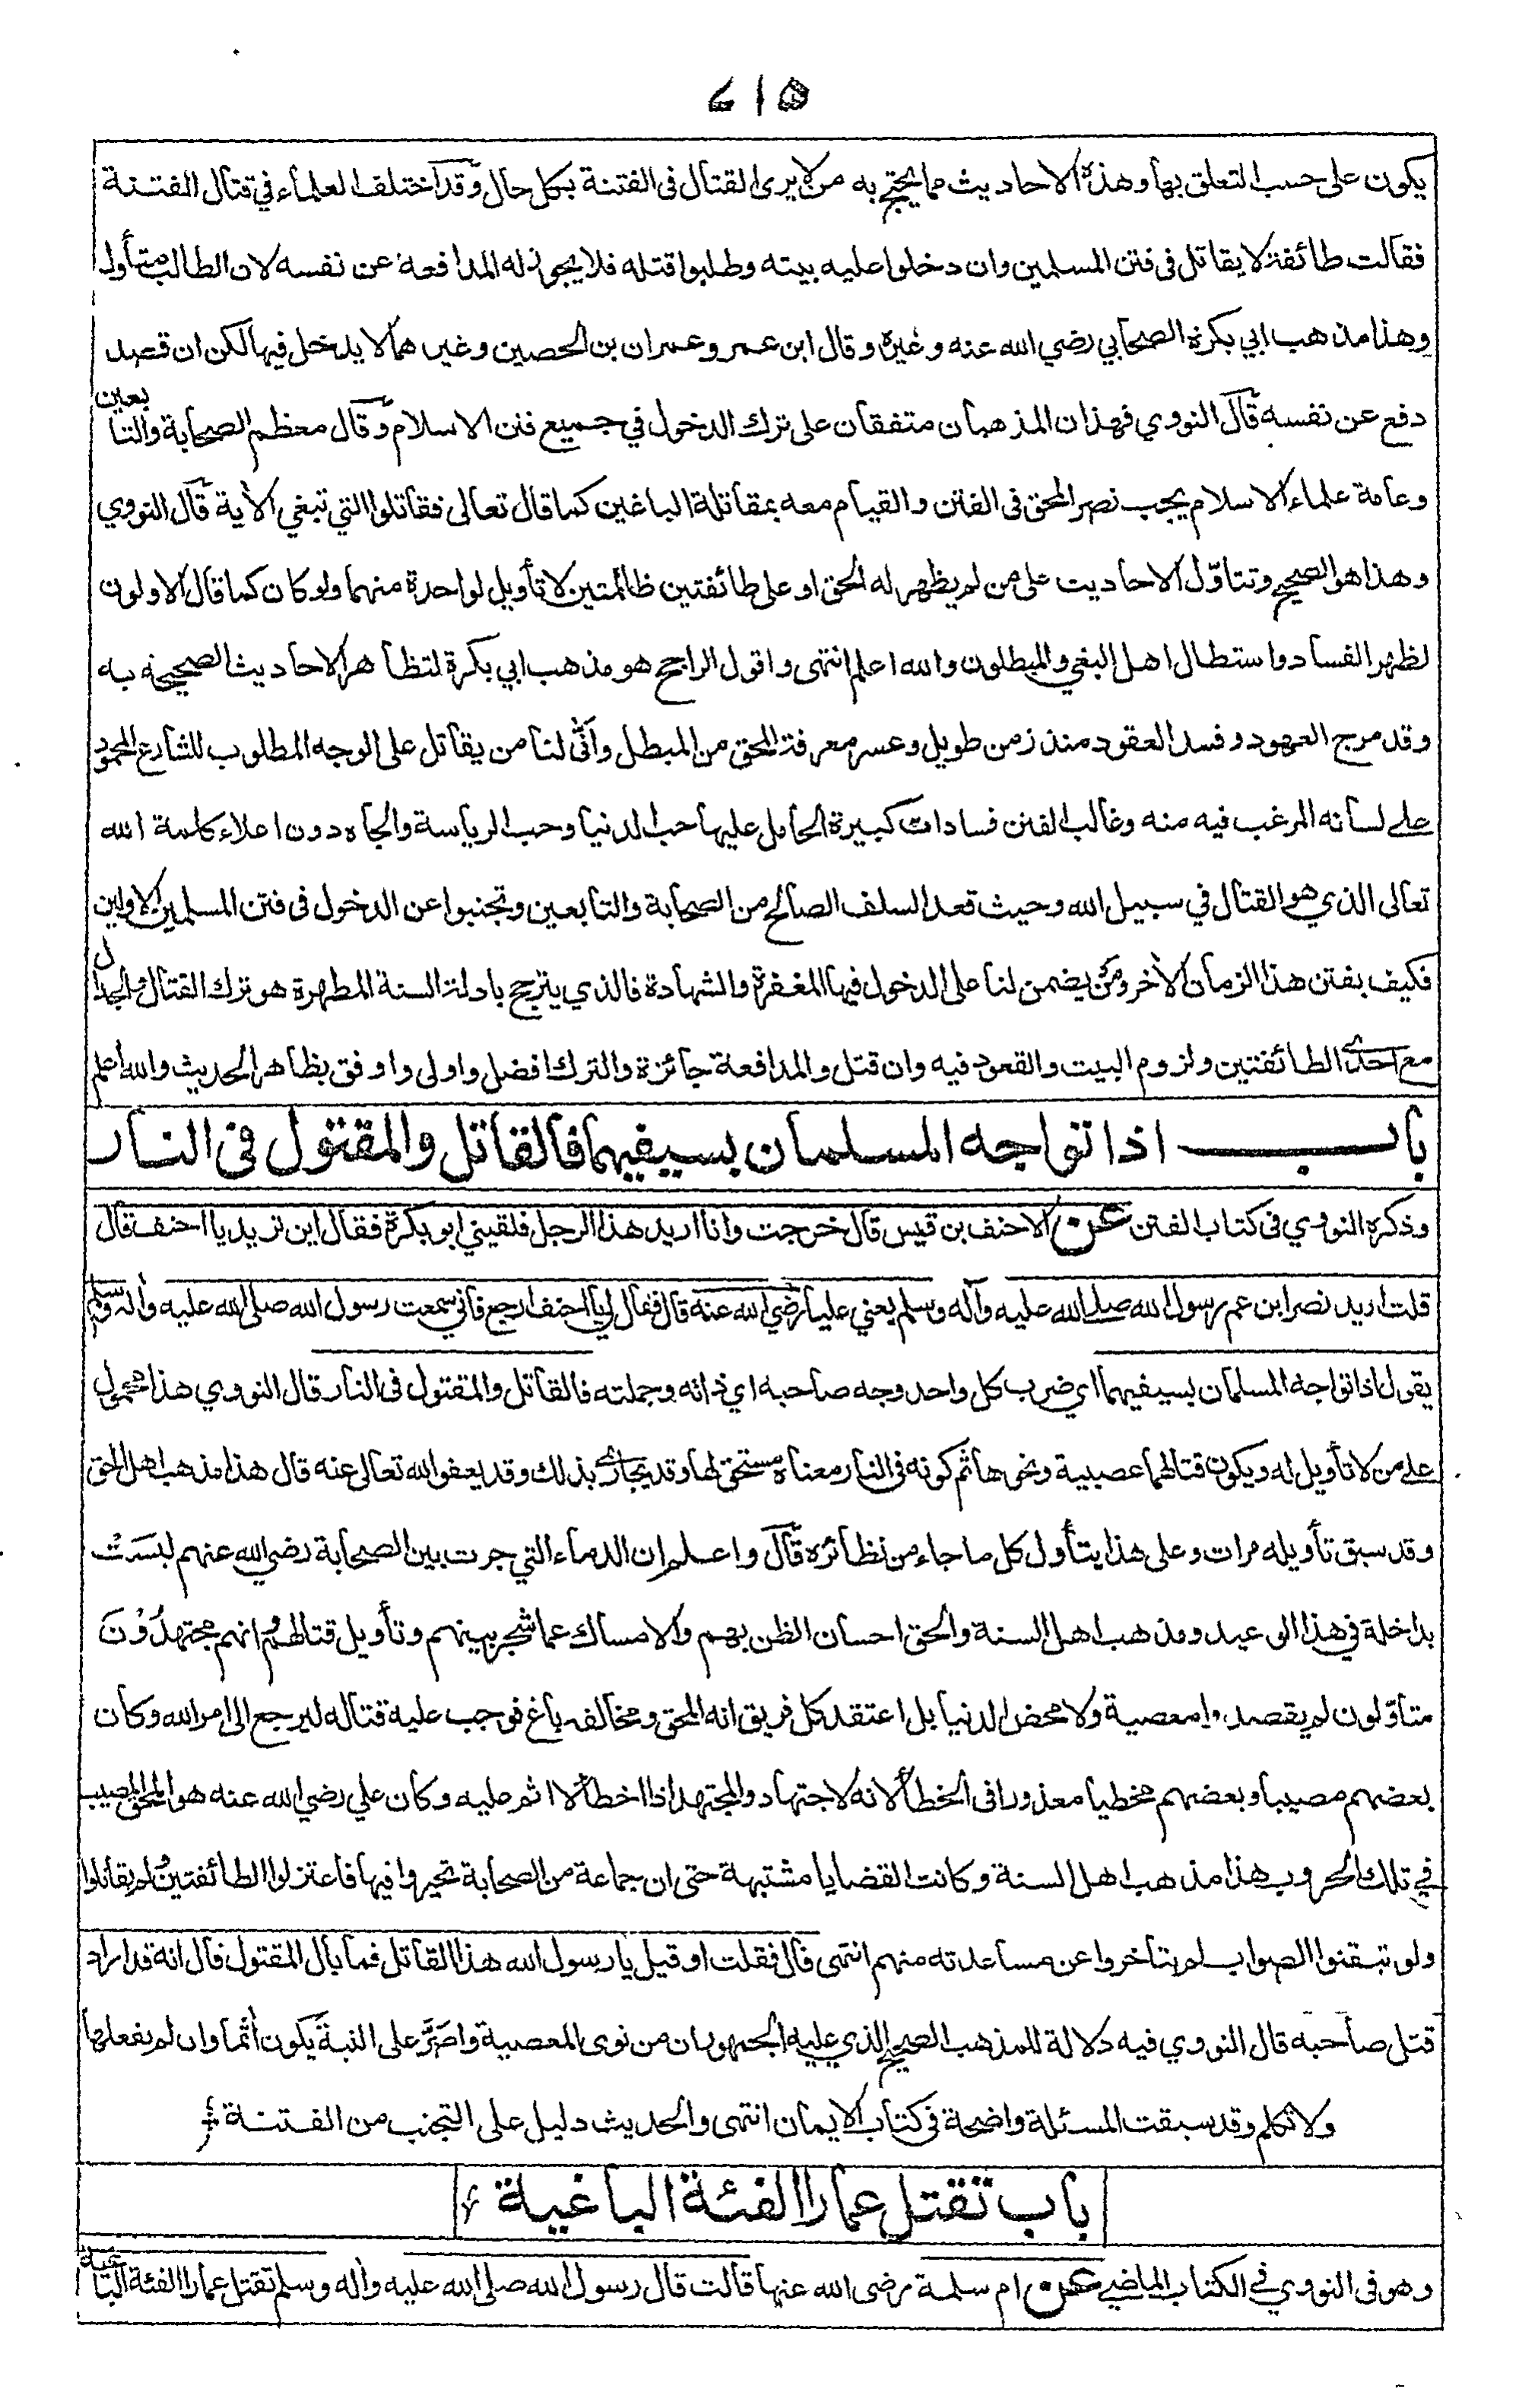 ٦١٥
يكون على حسب التعلق بها وهذه الاحاديث مما يحتج به من لا يرى القتال فى الفتنة بكل حال وقد اختلف العلماء في قتال الفتنة
فقالت طائفة لا يقاتل فى فتن المسلمين وان دخلوا عليه بيته وطلبوا قتله فلا يجوز له المدافعة عن نفسه لان الطالب متأول
وهذا مذهب ابي بكرة الصحابي رضي الله عنه وغيره وقال ابن عمر وعمران بن الحصين وغيرهما لا يدخل فيها لكن ان قصد
دفع عن نفسه قال النووي فهذان المذهبان متفقان على ترك الدخول في جميع فتن الاسلام وقال معظم الصحابة والتابعين
وعامة علماء الاسلام يجب نصر المحق فى الفتن والقيام معه بمقاتلة الباغين كما قال تعالى فقاتلوا التي تبغي الأية قال النووي
وهذا هو الصحيح وتتاوّل الاحاديث على من لم يظهر له الحق او على طائفتين ظالمتين لا تأويل لواحدة منهما ولو كان كما قال الاولون
لظهر الفساد واستطال اهل البغي والمبطلون والله اعلم انتهى واقول الراجح هو مذهب ابي بكرة لتظاهر الاحاديث الصحيحة به
وقد مرج العهود وفسد العقود منذ زمن طويل وعسر معرفة المحق من المبطل وأنّى لنا من يقاتل على الوجه المطلوب للشارع المحمود
على لسانه المرغب فيه منه وغالب الفتن فسادات كبيرة الحامل عليها حب الدنيا وحب الرياسة والجاه دون اعلاء كلمة الله
تعالى الذي هو القتال في سبيل الله وحيث قعد السلف الصالح من الصحابة والتابعين وتجنبوا عن الدخول فى فتن المسلمين الاولين
فكيف بفتن هذا الزمان الأخر ومن يضمن لنا على الدخول فيها المغفرة والشهادة فالذي يترجح بادلة السنة المطهرة هو ترك القتال والجدال
مع احدى الطائفتين ولزوم البيت والقعود فيه وان قتل والمدافعة جائزة والترك افضل واولى واوفق بظاهر الحديث والله اعلم
باب اذا تواجه المسلمان بسيفيهما فالقاتل والمقتول فى النار
وذكره النووي فى كتاب الفتن عن الاحنف بن قيس قال خرجت وانا اريد هذا الرجل فلقيني ابو بكرة فقال اين تريد يا احنف قال
قلت اريد نصر ابن عم رسول الله صلى الله عليه وآله وسلم يعني عليا رضي الله عنه قال فقال لي يا احنف ارجع فاني سمعت رسول الله صلى الله عليه واله وسلم
يقول اذا تواجه المسلمان بسيفيهما اي ضرب كل واحد وجه صاحبه اي ذاته وجملته فالقاتل والمقتول فى النار قال النووي هذا محمول
على من لا تأويل له ويكون قتالهما عصبية ونحوها ثم كونه فى النار معناه مستحق لها وقد يجازى بذلك وقد يعفو الله تعالى عنه قال هذا مذهب اهل الحق
وقد سبق تأويله مرات وعلى هذا يتأول كل ما جاء من نظائره قال واعلم ان الدماء التي جرت بين الصحابة رضي الله عنهم ليسَتْ
بداخلة في هذا الوعيد ومذهب اهل السنة والحق احسان الظن بهم والامساك عما شجر بينهم وتأويل قتالهم وانهم مجتهدُوْنَ
متاوّلون لم يقصدوا معصية ولا محض الدنيا بل اعتقد كل فريق انه المحق ومخالفه باغ فوجب عليه قتاله ليرجع الى امر الله وكان
بعضهم مصيبا وبعضهم مخطيا معذورا فى الخطأ لانه لاجتهاد والمجتهد اذا اخطأ لا اثم عليه وكان علي رضي الله عنه هو المحق المصيب
في تلك الحروب هذا مذهب اهل السنة وكانت القضايا مشتبهة حتى ان جماعة من الصحابة تحيروا فيها فاعتزلوا الطائفتين ولم يقاتلوا
ولو تيقنوا الصواب لم يتأخروا عن مساعدته منهم انتهى قال فقلت او قيل يا رسول الله هذا القاتل فما بال المقتول قال انه قد اراد
قتل صاحبه قال النووي فيه دلالة للمذهب الصحيح الذي عليه الجمهور ان من نوى المعصية واصَرَّ على النية يكون أثما وان لم يفعلها
ولا تكلم وقد سبقت المسئلة واضحة فى كتاب الايمان انتهى والحديث دليل على التجنب من الفتنة
باب تقتل عمارا الفئة الباغية
وهو فى النووي في الكتاب الماضي عن ام سلمة رضى الله عنها قالت قال رسول الله صلى الله عليه واله وسلم تقتل عمارا الفئة الباغية